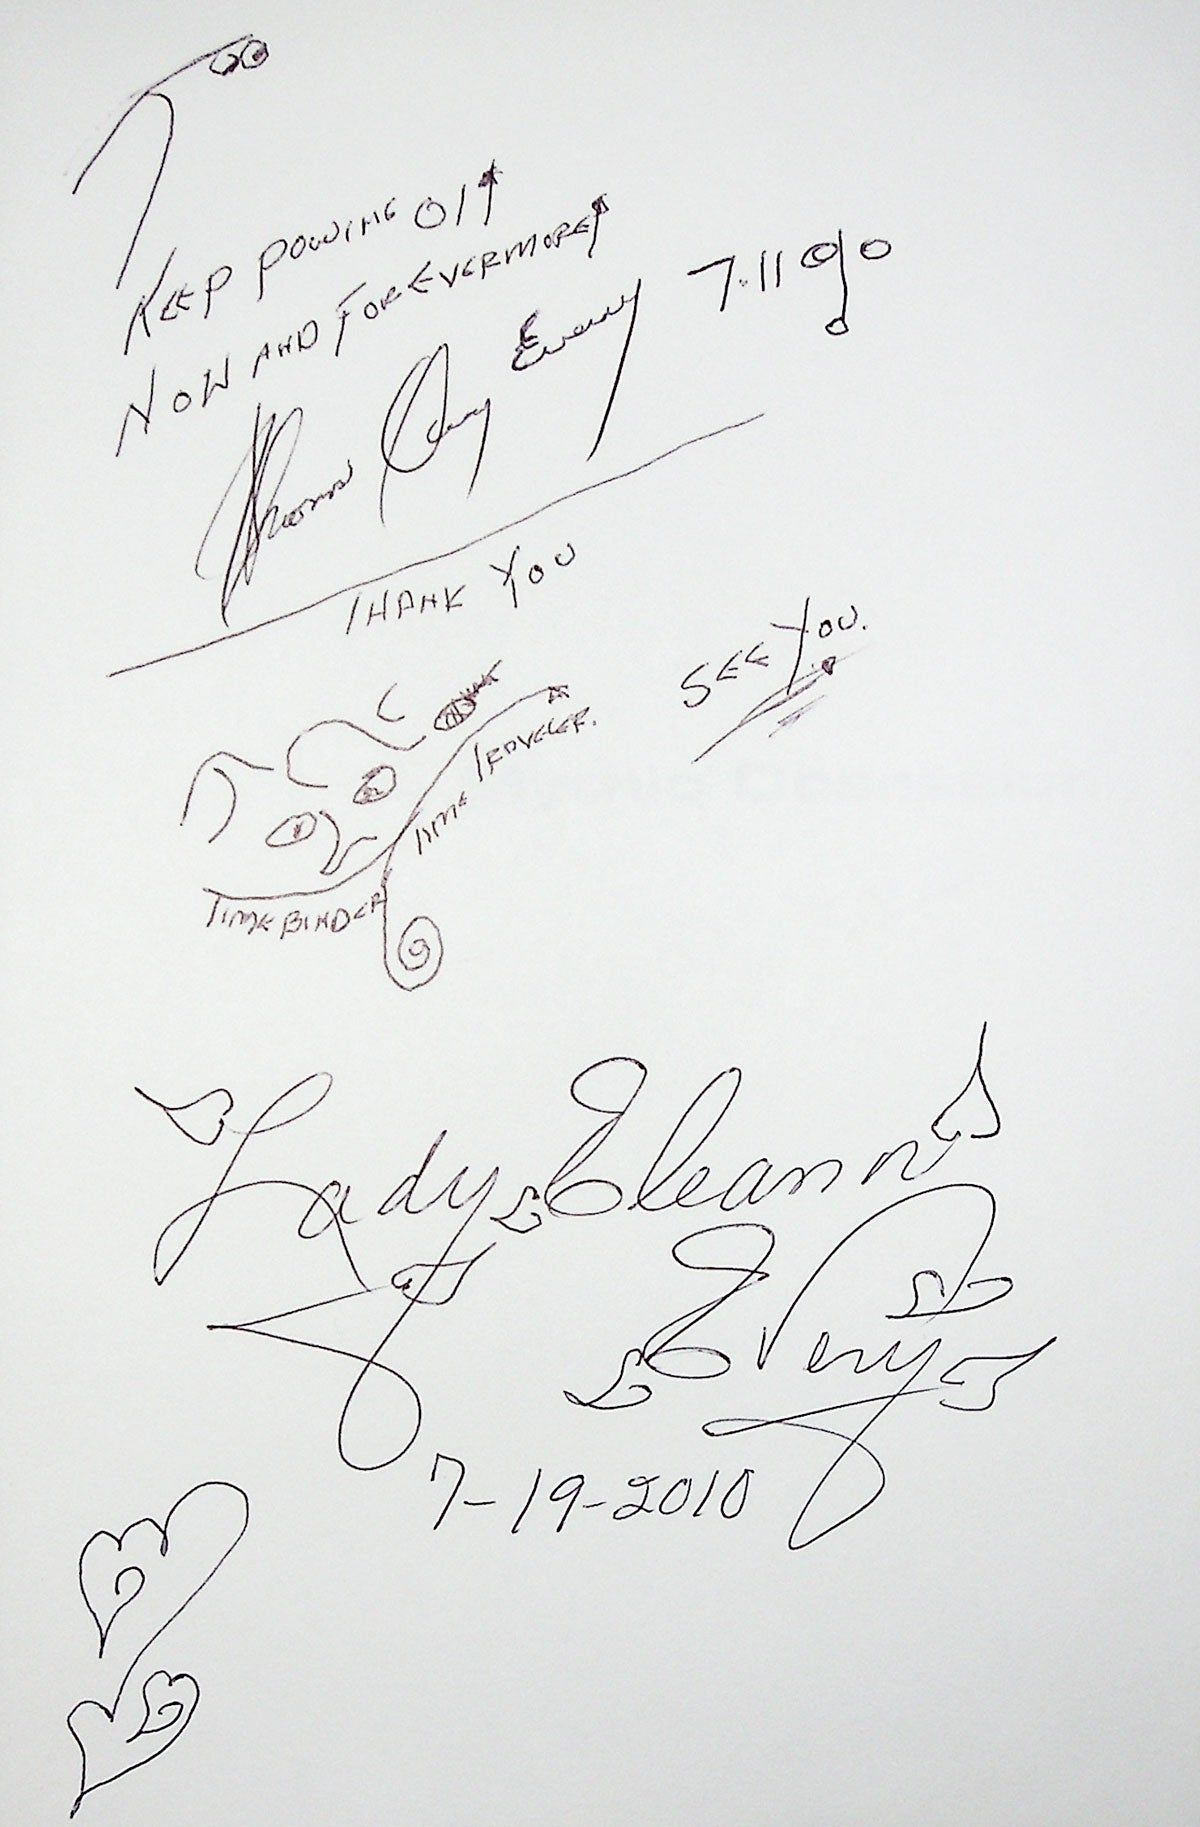 KEEP POWING ON
NOW AND FOREVERMORE!
Every 7.11
THANK YOU
SEE YOU.
TIME TRAVELER.
TIME BINDER
Lady Eleann
Every
7-19-2010